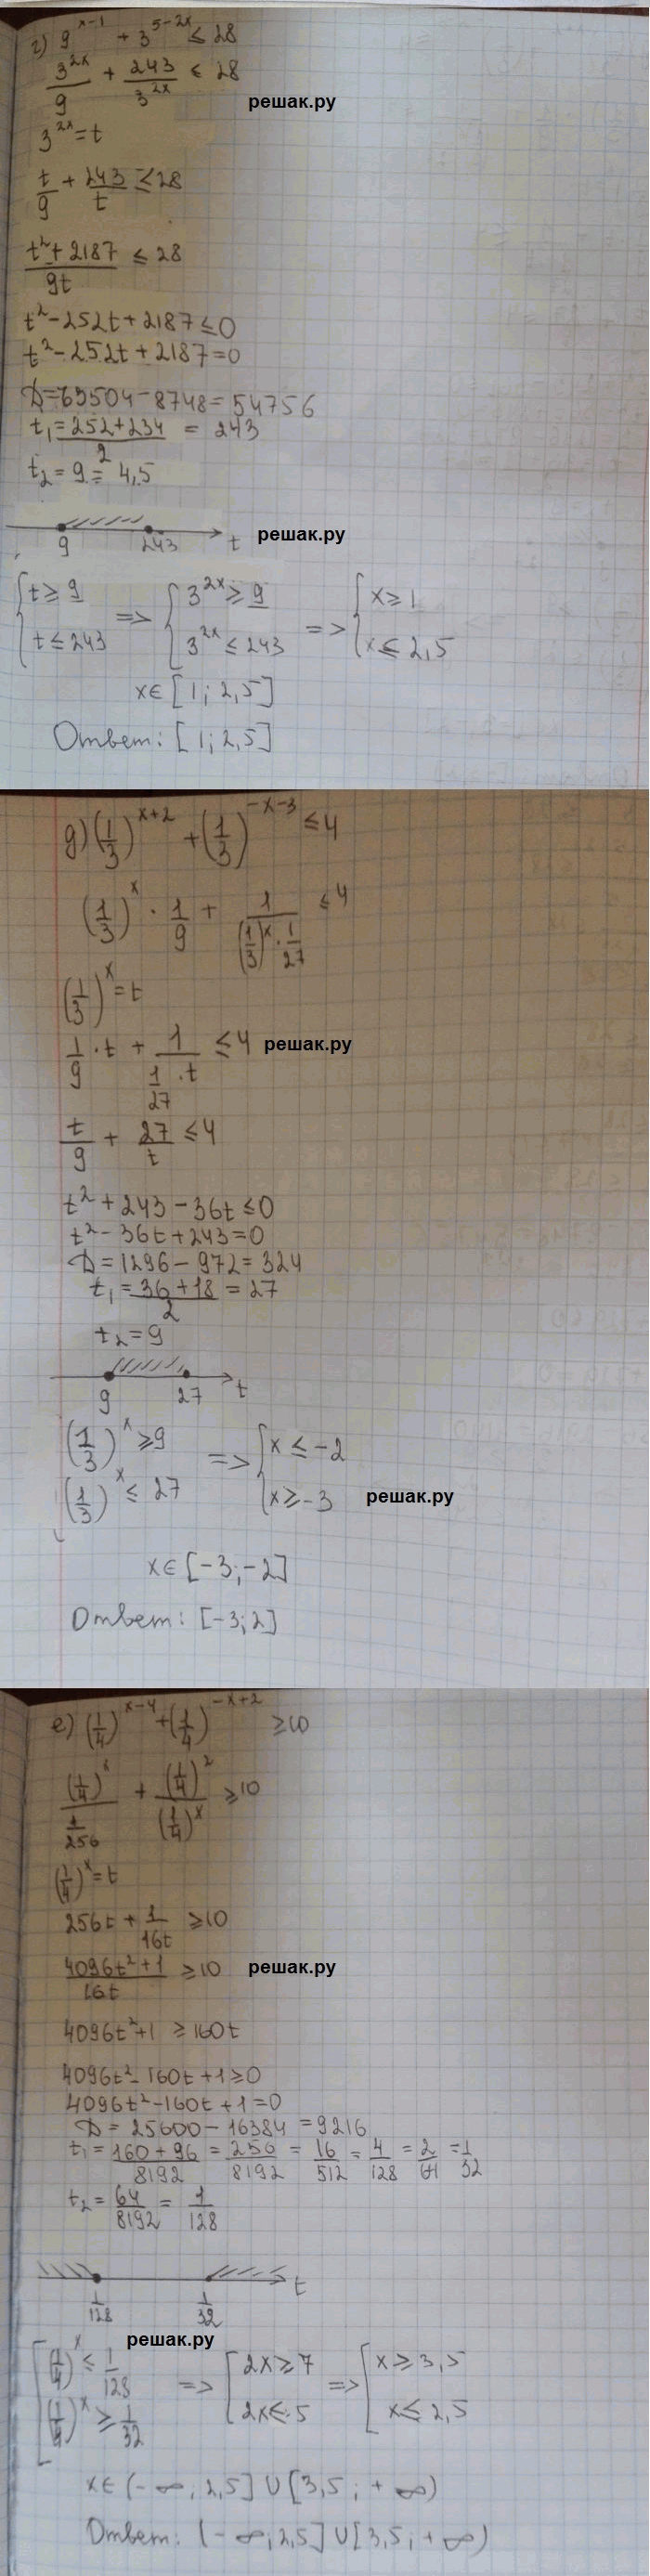 г) 9^(x-1) + 3^(5-2x) ≤ 28
3^(2x)/9 + 243/3^(2x) ≤ 28
решак.ру
3^(2x) = t
t/9 + 243/t ≤ 28
(t² + 2187)/9t ≤ 28
t² - 252t + 2187 ≤ 0
t² - 252t + 2187 = 0
D = 63504 - 8748 = 54756
t₁ = (252+234)/2 = 243
t₂ = 9 = 4,5
9 243 t решак.ру
{ t ≥ 9 => { 3^(2x) ≥ 9 => { x ≥ 1
t ≤ 243 3^(2x) ≤ 243 x ≤ 2,5
x ∈ [1; 2,5]
Ответ: [1; 2,5]
д) (1/3)^(x+2) + (1/3)^(-x-3) ≤ 4
(1/3)^x · 1/9 + 1/((1/3)^x · 1/27) ≤ 4
(1/3)^x = t
1/9 · t + 1/(1/27 · t) ≤ 4 решак.ру
t/9 + 27/t ≤ 4
t² + 243 - 36t ≤ 0
t² - 36t + 243 = 0
D = 1296 - 972 = 324
t₁ = (36+18)/2 = 27
t₂ = 9
9 27 t
{ (1/3)^x ≥ 9 => { x ≤ -2
(1/3)^x ≤ 27 x ≥ -3 решак.ру
x ∈ [-3; -2]
Ответ: [-3; 2]
е) (1/4)^(x-4) + (1/4)^(-x+2) ≥ 10
(1/4)^x/(1/256) + (1/4)²/(1/4)^x ≥ 10
(1/4)^x = t
256t + 1/16t ≥ 10
(4096t² + 1)/16t ≥ 10 решак.ру
4096t² + 1 ≥ 160t
4096t² - 160t + 1 ≥ 0
4096t² - 160t + 1 = 0
D = 25600 - 16384 = 9216
t₁ = (160 + 96)/8192 = 256/8192 = 16/512 = 4/128 = 2/64 = 1/32
t₂ = 64/8192 = 1/128
1/128 1/32 t
решак.ру
[ (1/4)^x ≤ 1/128 => [ 2x ≥ 7 => [ x ≥ 3,5
(1/4)^x ≥ 1/32 2x ≤ 5 x ≤ 2,5
x ∈ (-∞; 2,5] ∪ [3,5; +∞)
Ответ: (-∞; 2,5] ∪ [3,5; +∞)